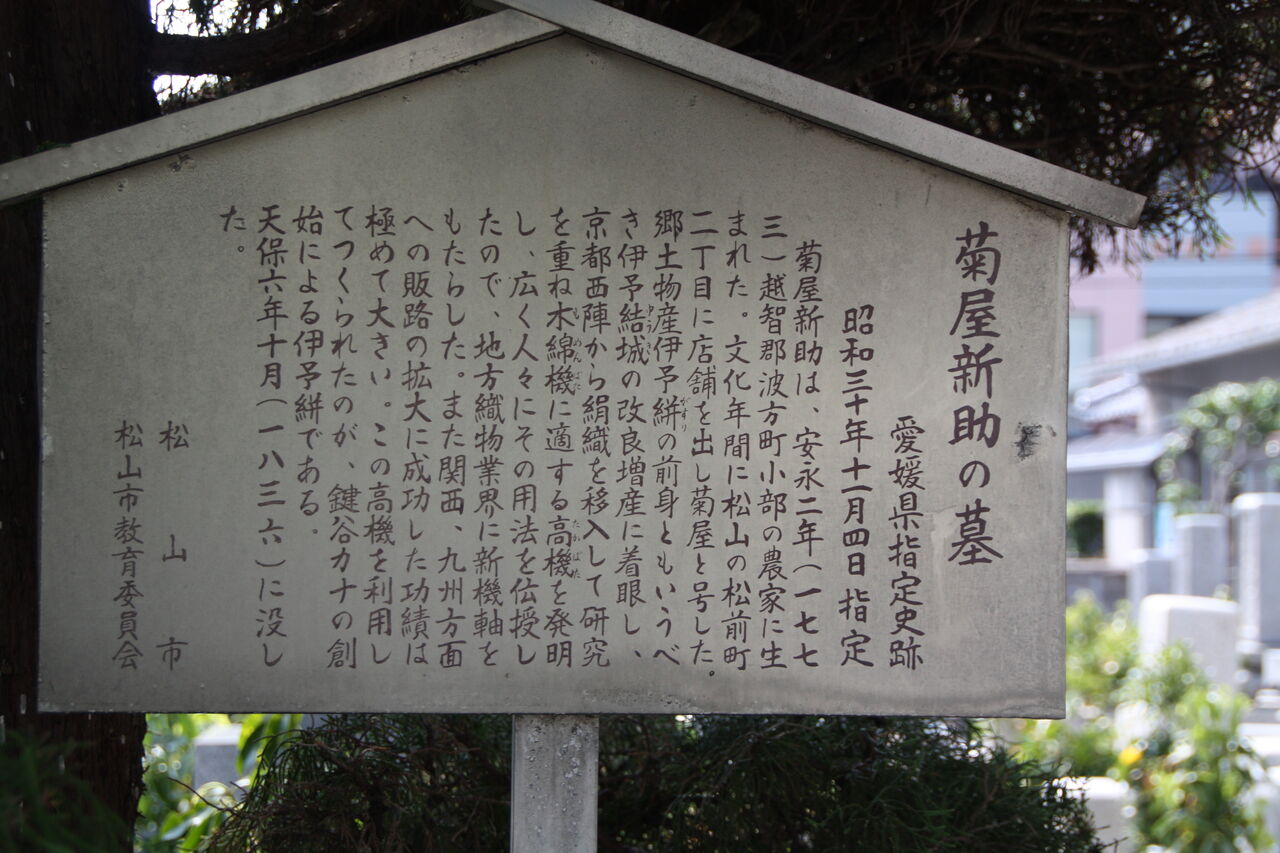 菊屋新助の墓
愛媛県指定史跡
昭和三十年十一月四日 指定
菊屋新助は、安永二年(一七七
三)越智郡波方町小部の農家に生
まれた。文化年間に松山の松前町
二丁目に店舗を出し菊屋と号した。
郷土物産伊予絣の前身ともいうべ
き伊予結城の改良増産に着眼し、
京都西陣から絹織を移入して研究
を重ね木綿機に適する高機を発明
し、広く人々にその用法を伝授し
たので、地方織物業界に新機軸を
もたらした。また関西、九州方面
への販路の拡大に成功した功績は
極めて大きい。この高機を利用し
てつくられたのが、鍵谷カナの創
始による伊予絣である。
天保六年十月(一八三六)に没し
た。
松山市
松山市教育委員会